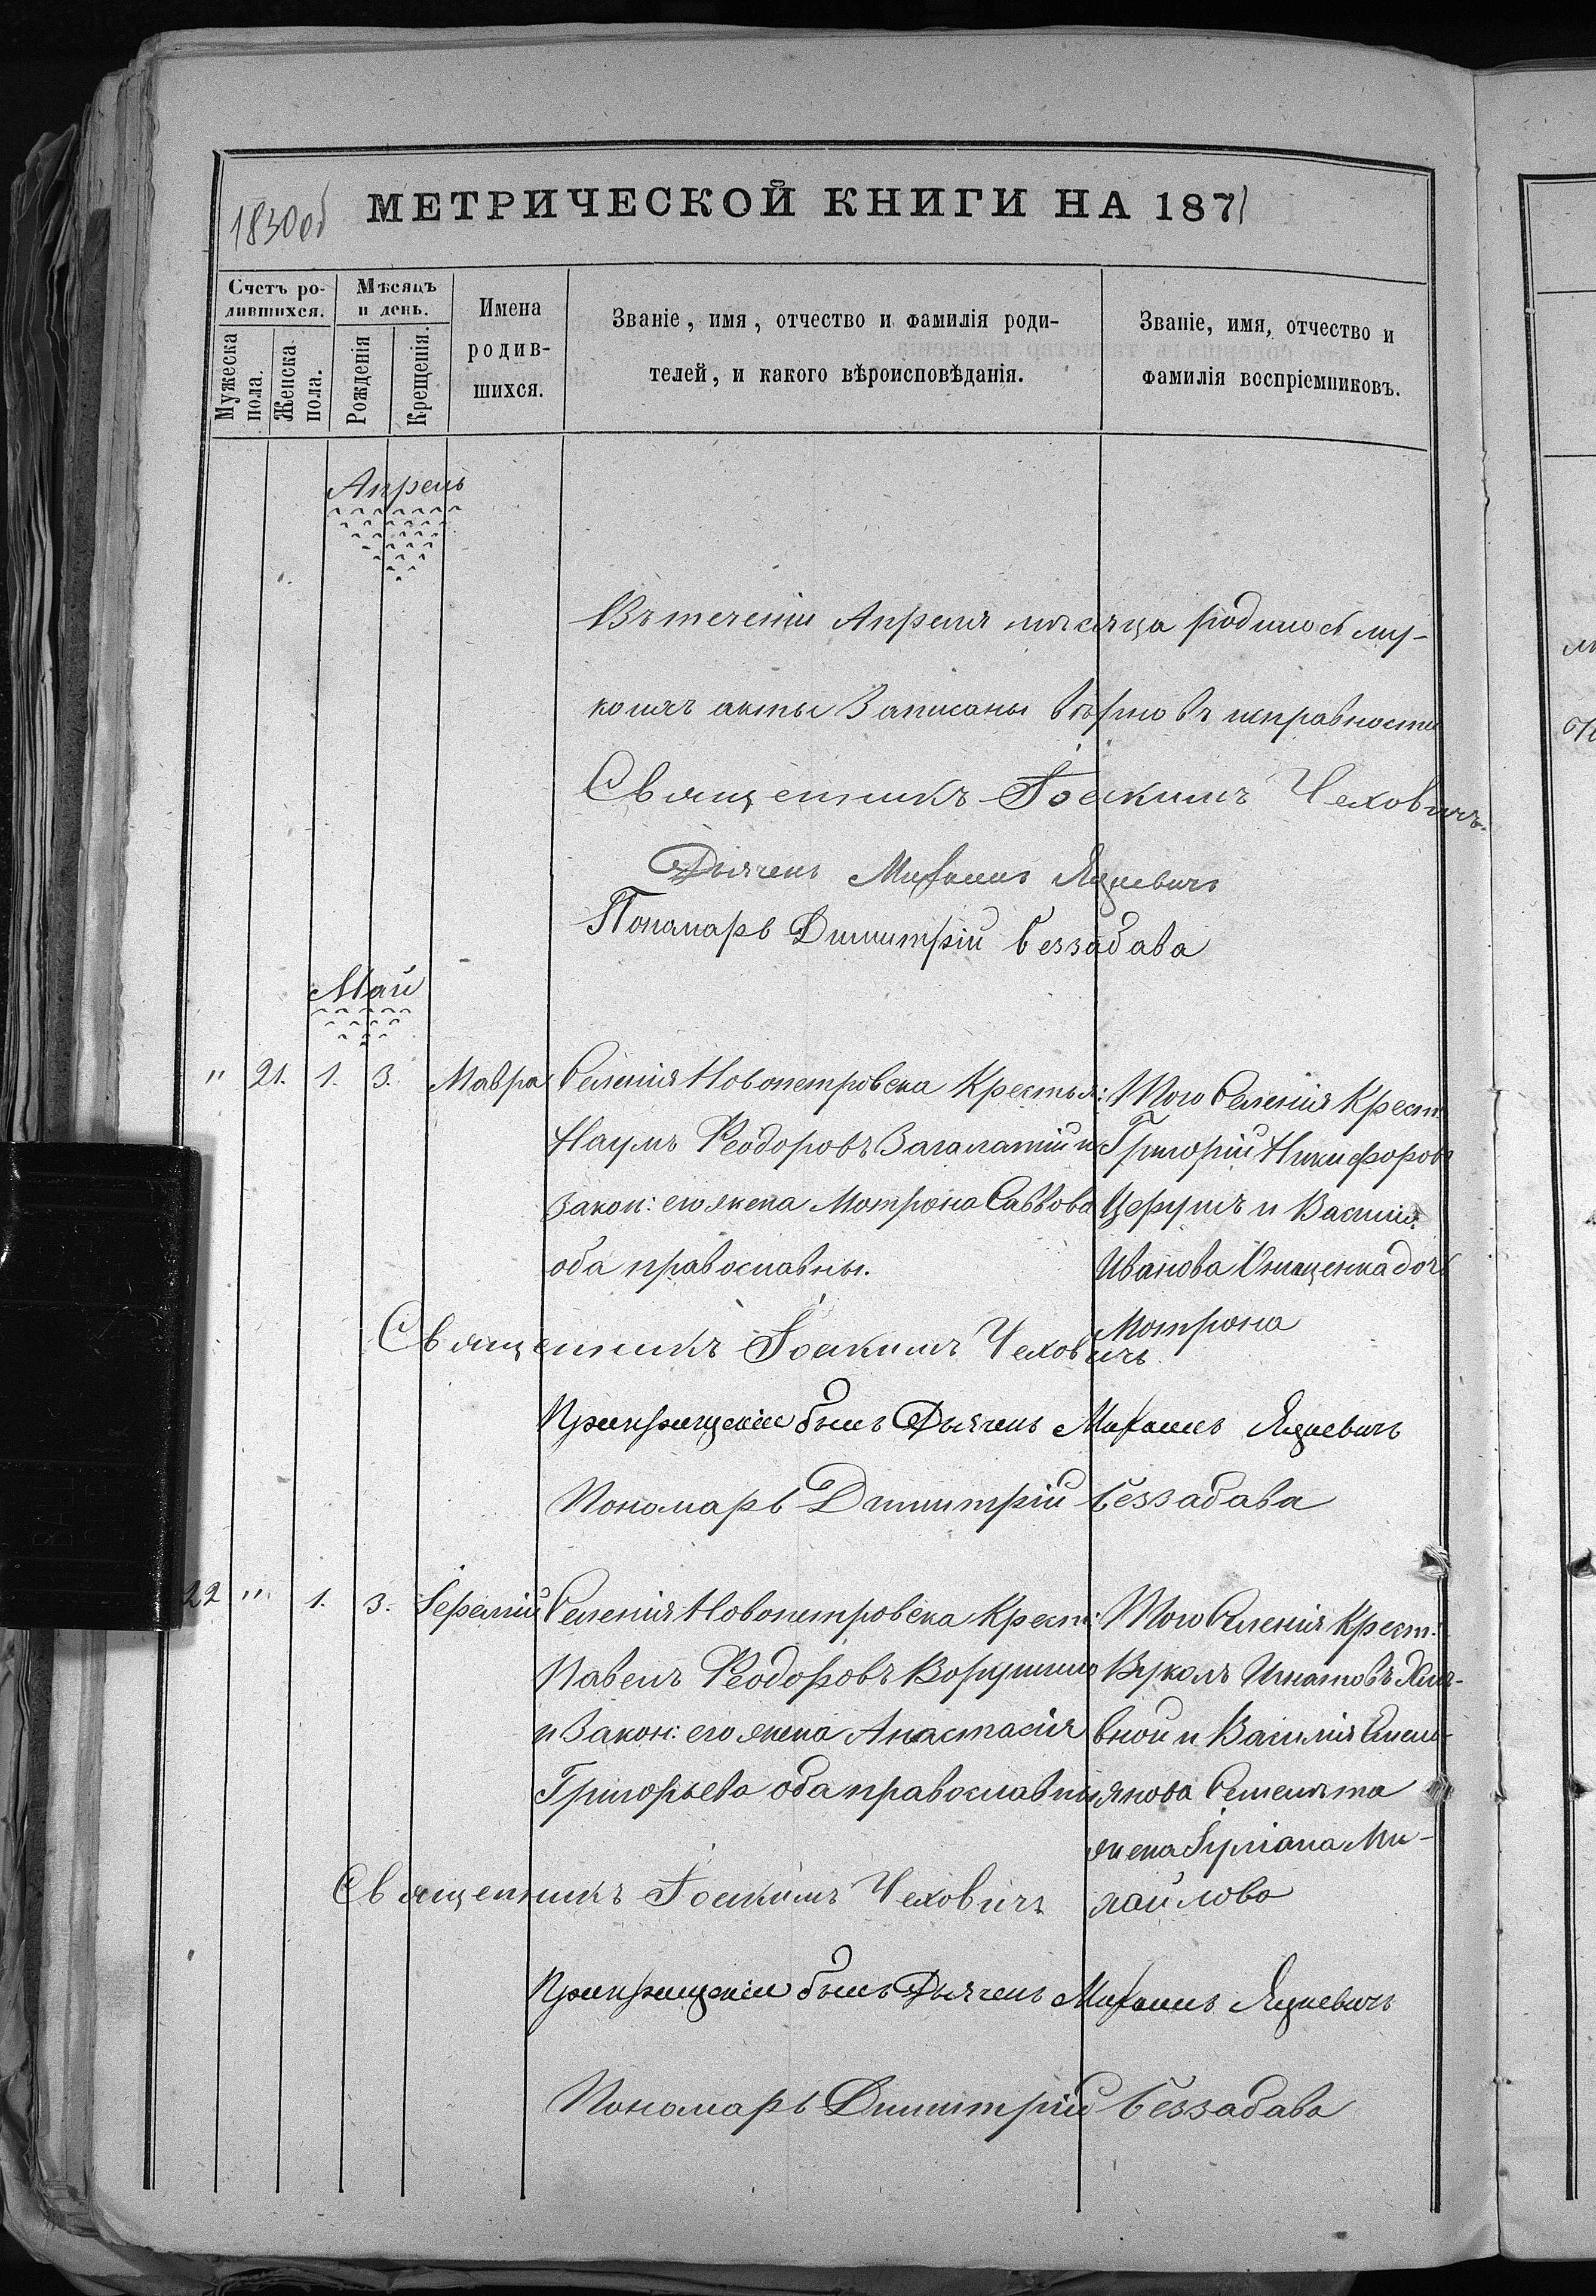 1830об
МЕТРИЧЕСКОЙ КНИГИ НА 1871
Счетъ ро-
дившихся.
Мужеска
пола.
Женска
пола.
Мѣсяцъ
и день.
Рожденія
Крещенія.
Имена
родив-
шихся.
Званіе, имя, отчество и фамилія роди-
телей, и какого вѣроисповѣданія.
Званіе, имя, отчество и
фамилія воспріемниковъ.
Апрель
Въ теченіи Апреля мѣсяца
акты Записаны вѣрно въ исправности
Священникъ Іоакимъ Чеховичъ
Дьячекъ Михаилъ Яцкевичъ
Пономарь Димитрій Беззабава
Май
" 21. 1. 3. Мавра
Селенія Новопетровска Крестья:
Наумъ Феодоровъ и
Закон: его жена Мотрона Саввова
оба православны.
Того Селенія Крест:
Григорій Никифоровъ
и Василія
Иванова дочь
Мотрона
Священникъ Іоакимъ Чеховичъ
При крещеніи былъ Дьячекъ Михаилъ Яцкевичъ
Пономарь Димитрій Беззабава
22 " 1. 3. Іеремій
Селенія Новопетровска Крест:
Павелъ Феодоровъ
и Закон: его жена Анастасія
Григорьева оба православны
Того Селенія Крест:
Вуколъ Игнатовъ
вной и Василія Емель-
янова
жена Іуліана Ми-
хайлова
Священникъ Іоакимъ Чеховичъ
При крещеніи былъ Дьячекъ Михаилъ Яцкевичъ
Пономарь Димитрій Беззабава